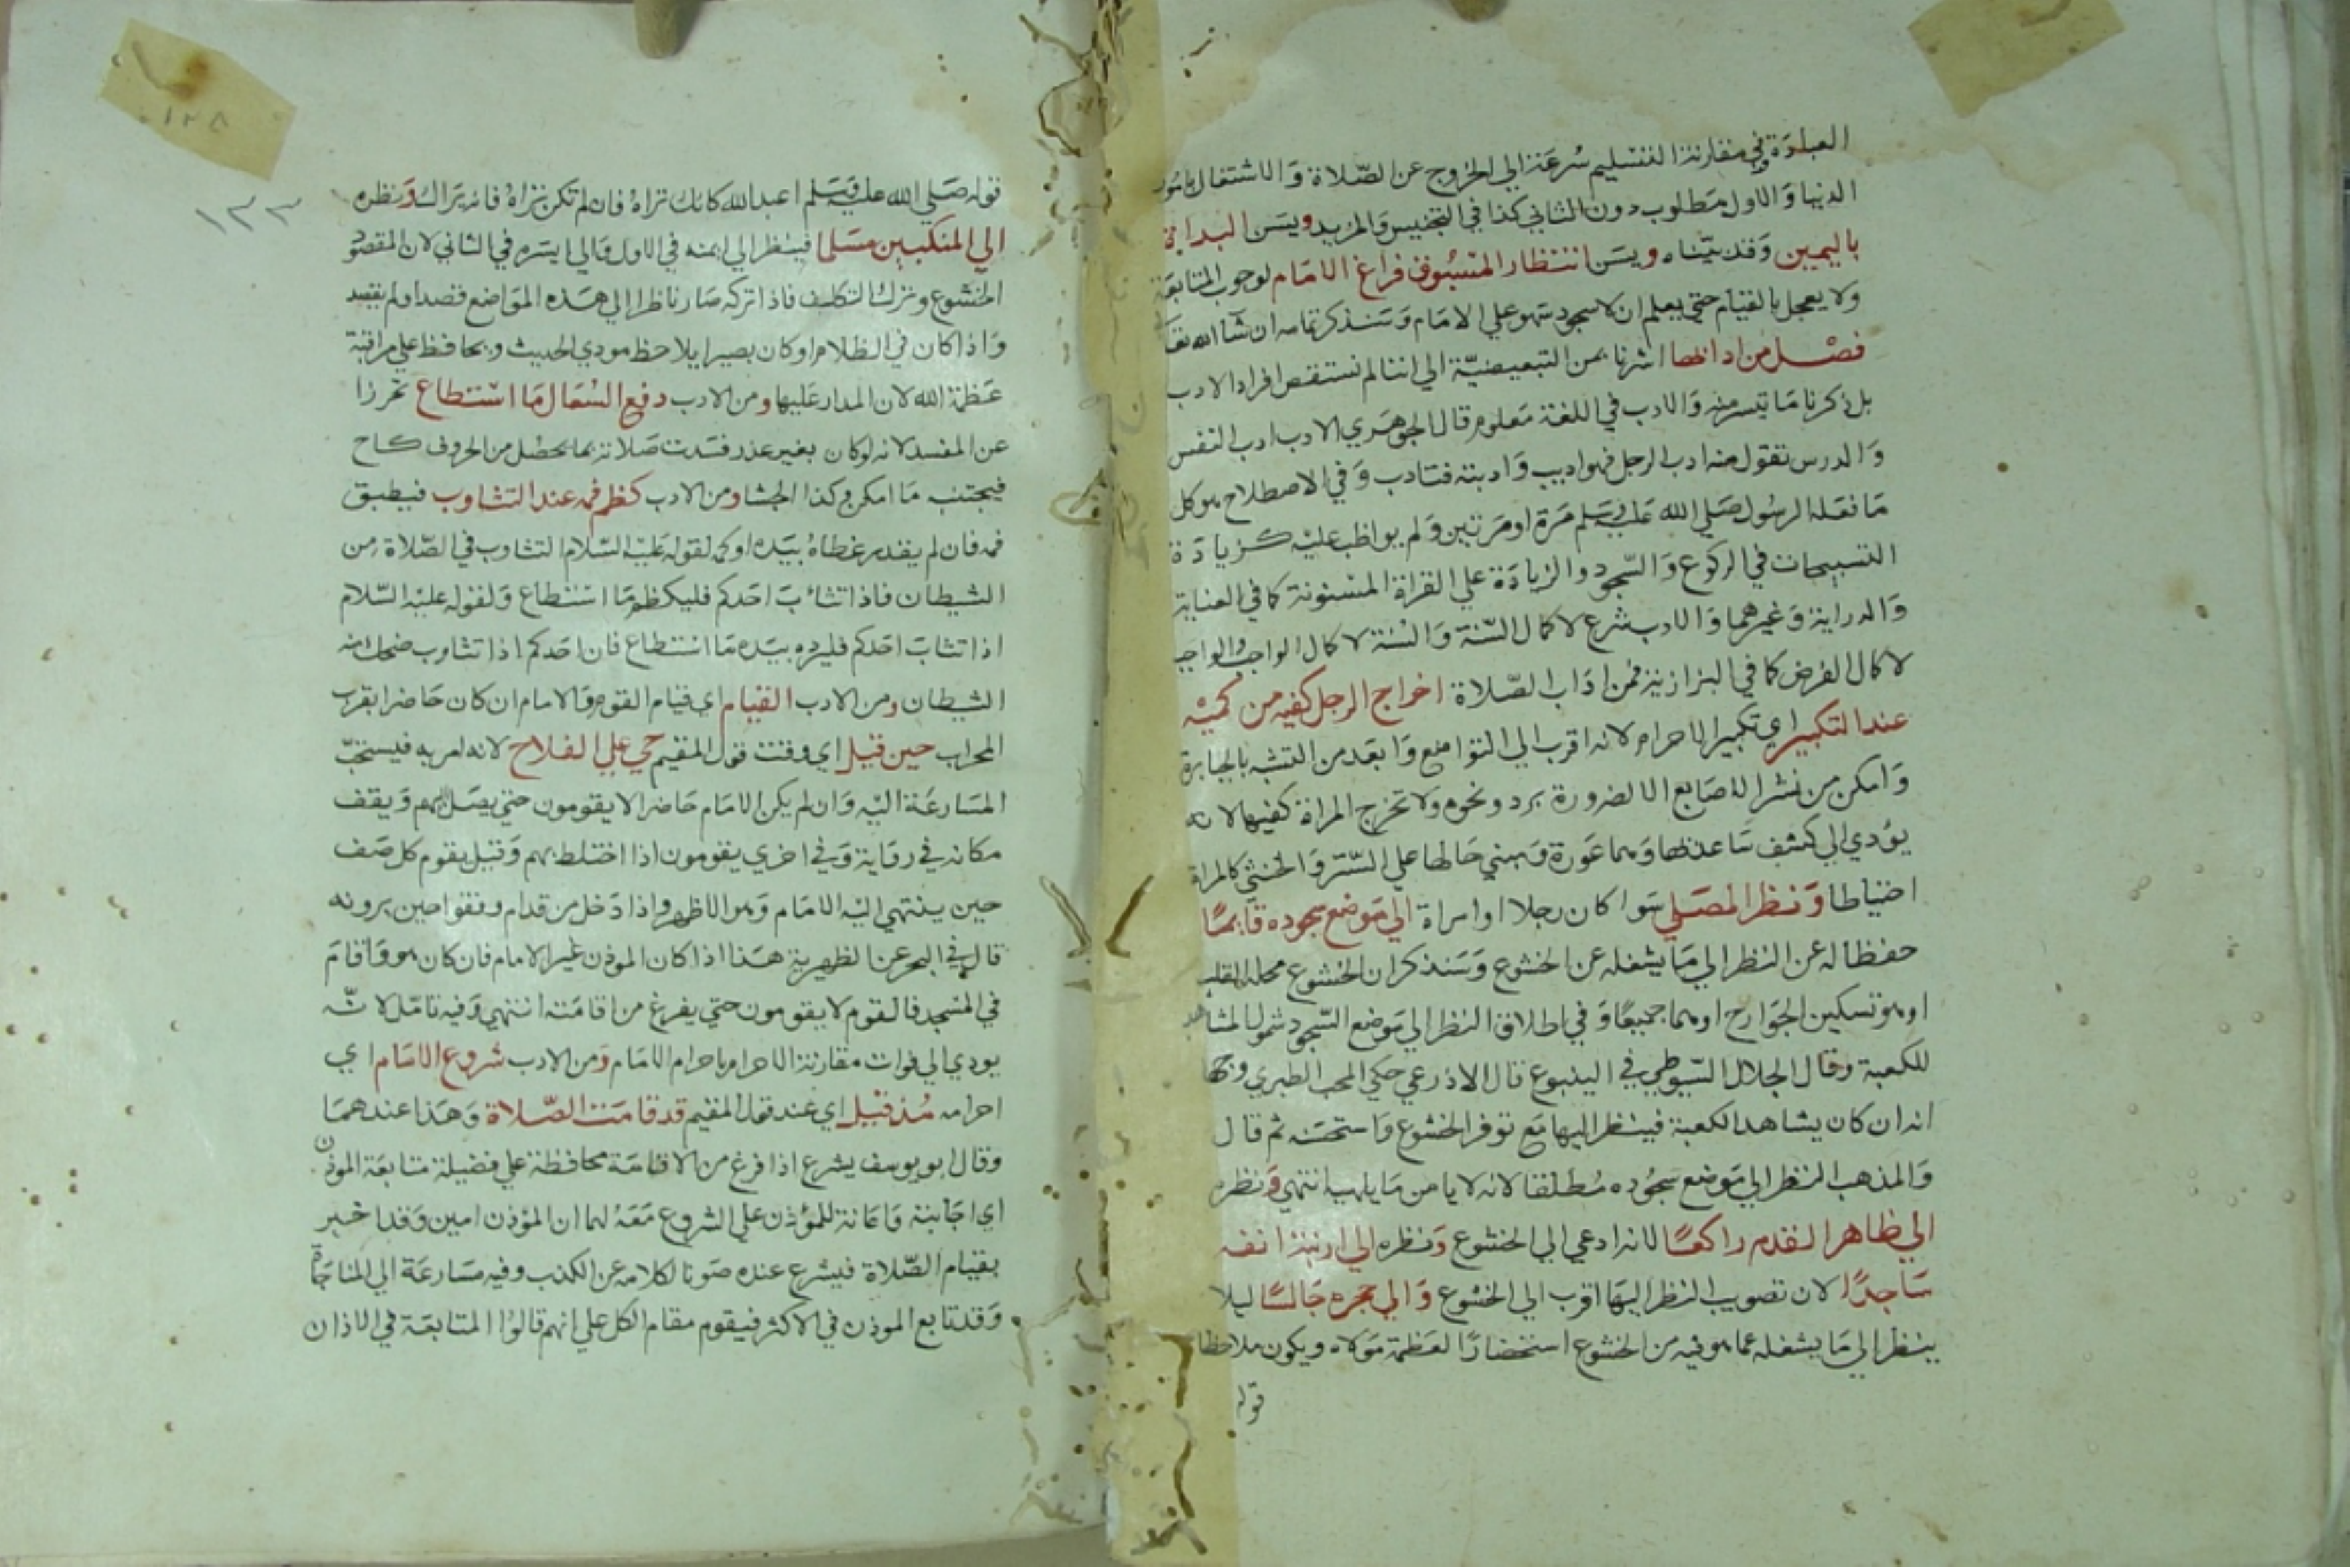 العبادة وفي مقارنة التسليم سرعة الي الخروج عن الصلاة والاشتغال بامور
الدنيا والاول مطلوب دون الثاني كذا في التجنيس والمزيد ويسن البداية
باليمين وقد بيناه ويسن انتظار المسبوق فراغ الامام لوجوب المتابعة
ولا يعجل بالقيام حتي يعلم ان لا سجود سهو علي الامام وسنذكر تمامه ان شآ الله تعا
فصل من ادابها اشرنا بمن التبعيضية الي اننا لم نستقص افراد الادب
بل ذكرنا ما تيسر منه والادب في اللغة معلوم قال الجوهري الادب ادب النفس
والدرس تقول منه ادب الرجل فهو اديب وادبته فتادب وفي الاصطلاح هو كل
ما فعله الرسول صلي الله عليه وسلم مرة او مرتين ولم يواظب عليه كزيادة
التسبيحات في الركوع والسجود والزيادة علي القراة المسنونة كما في العناية
والدراية وغيرهما والادب شرع لاكمال السنة والسنة لاكمال الواجب والواجب
لاكمال الفرض كما في البزازية فمن اداب الصلاة اخراج الرجل كفيه من كميه
عند التكبير اي تكبير الاحرام لانه اقرب الي التواضع وابعد من التشبه بالجبابرة
وامكن من نشر الاصابع الا لضرورة برد ونحوه ولا تخرج المراة كفيها لانه
يؤدي الي كشف ساعدها وهما عورة ومبني حالها علي الستر والخنثي كالمراة
احتياطا ونظر المصلي سوا كان رجلا او امراة الي موضع سجوده قايما
حفظا له عن النظر الي ما يشغله عن الخشوع وسنذكر ان الخشوع محله القلب
او هو تسكين الجوارح او هما جميعا وفي اطلاق النظر الي موضع السجود شمول المشاهد
للكعبة وقال الجلال السيوطي في الينبوع قال الاذرعي حكي المحب الطبري وجها
انه ان كان يشاهد الكعبة فينظر اليها مع توفر الخشوع واستحسنه ثم قال
والمذهب النظر الي موضع سجوده مطلقا لانه لا يامن ما يلهيه انتهي ونظره
الي ظاهر القدم راكعا لانه ادعي الي الخشوع ونظره الي ارنبة انفه
ساجدا لان تصويب النظر اليها اقرب الي الخشوع والي حجره جالسا ليلا
ينظر الي ما يشغله عما هو فيه من الخشوع استحضارا لعظمة مولاه ويكون ملاحظا
قوله
١٢٨
١٢٣
قوله صلي الله عليه وسلم اعبد الله كانك تراه فان لم تكن تراه فانه يراك ونظره
الي المنكبين مسلما فينظر الي ايمنه في الاول والي ايسره في الثاني لان المقصود
الخشوع وترك التكلف فاذا تركه صار ناظرا الي هذه المواضع قصدا ولم يقصد
واذا كان في الظلام او كان بصيرا يلاحظ مودي الحديث ويحافظ علي مراقبة
عظمة الله لان المدار عليها ومن الادب دفع السعال ما استطاع تحرزا
عن المفسد لانه لو كان بغير عذر فسدت صلاته بما يحصل من الحروف كاح
فيجتنب ما امكن وكذا الجشا ومن الادب كظم فمه عند التثاوب فيطبق
فمه فان لم يقدر غطاه بيده او كمه لقوله عليه السلام التثاوب في الصلاة من
الشيطان فاذا تثائب احدكم فليكظم ما استطاع ولقوله عليه السلام
اذا تثاب احدكم فليرده بيده ما استطاع فان احدكم اذا تثاوب ضحك منه
الشيطان ومن الادب القيام اي قيام القوم والامام ان كان حاضرا بقرب
المحراب حين قيل اي وقت قول المقيم حي علي الفلاح لانه امر به فيستحب
المسارعة اليه وان لم يكن الامام حاضرا لا يقومون حتي يصل اليهم ويقف
مكانه في رواية وفي اخري يقومون اذا اختلط بهم وقيل يقوم كل صف
حين ينتهي اليه الامام وهو الاظهر واذا دخل من قدام وقفوا حين يرونه
قال في البحر عن الظهيرية هذا اذا كان الموذن غير الامام فان كان هو واقام
في المسجد فالقوم لا يقومون حتي يفرغ من اقامته انتهي وفيه تامل لانه
يودي الي فوات مقارنة الاحرام باحرام الامام ومن الادب شروع الامام اي
احرامه مذ قيل اي عند قول المقيم قد قامت الصلاة وهذا عندهما
وقال ابو يوسف يشرع اذا فرغ من الاقامة محافظة علي فضيلة متابعة الموذن
اي اجابته واعانة للمؤذن علي الشروع معه لهما ان المؤذن امين وقد اخبر
بقيام الصلاة فيشرع عنده صونا لكلامه عن الكذب وفيه مسارعة الي المناجاة
وقد تابع الموذن في الاكثر فيقوم مقام الكل علي انهم قالوا المتابعة في الاذان